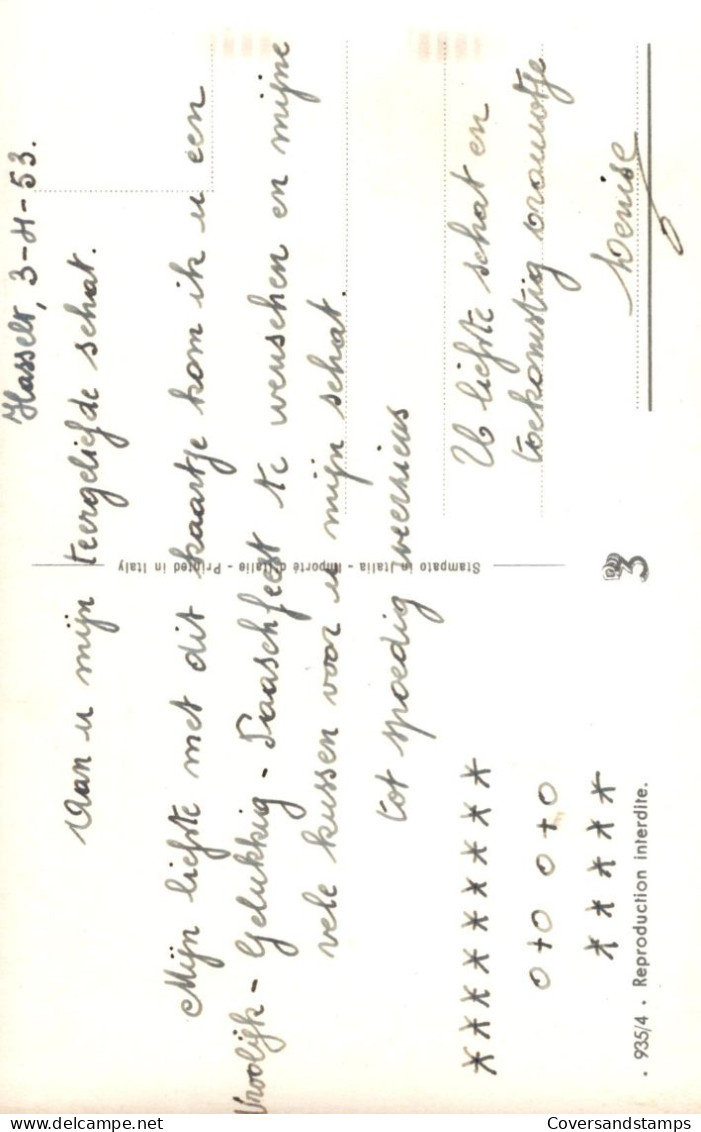 Hasselt, 3-4-53.
Aan u mijn teergeliefde schat.
Mijn liefste met dit kaartje kom ik u een
Vroolijk - Gelukkig - Paaschfeest te wenschen en mijne
vele kussen voor u mijn schat.
tot spoedig weerziens
U liefste schat en
toekomstig vrouwtje
Denise
* * * * * * * * *
o + o o + o
* * * * *
Stampato in Italia - Importé d'Italie - Printed in Italy
3
• 935/4 • Reproduction interdite.
Coversandstamps